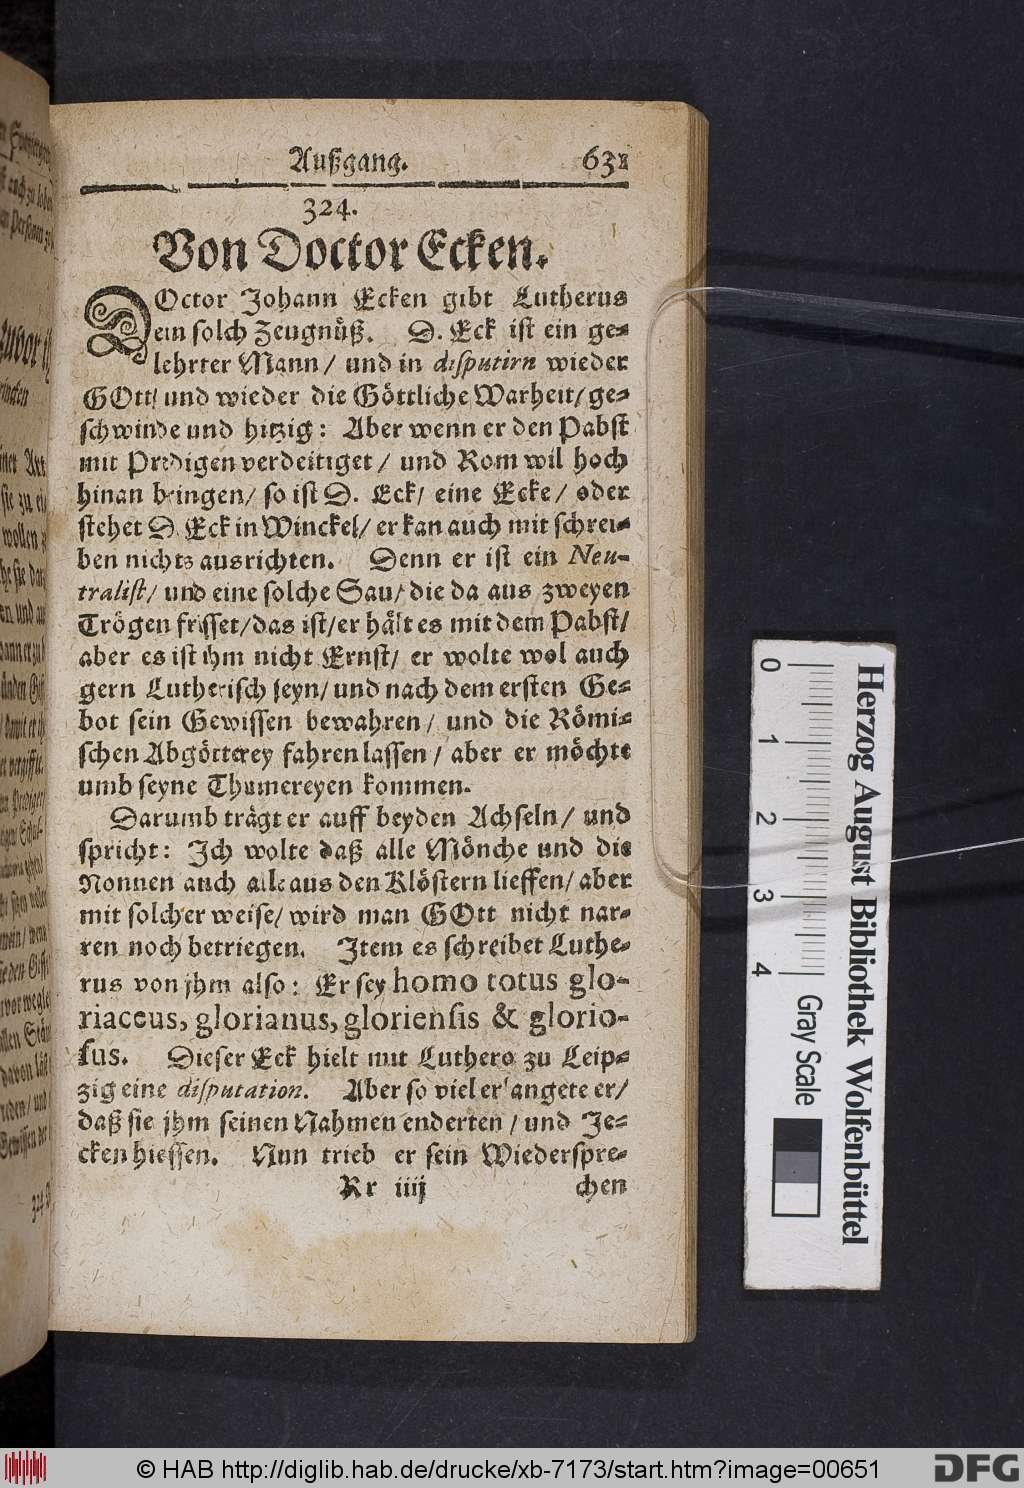 Außgang. 631
324.
Von Doctor Ecken.
DOctor Johann Ecken gibt Lutherus
ein solch Zeugnüß. D. Eck ist ein ge-
lehrter Mann / und in disputirn wieder
GOtt / und wieder die Göttliche Warheit / ge-
schwinde und hitzig: Aber wenn er den Pabst
mit Predigen verdeitiget / und Rom wil hoch
hinan bringen / so ist D. Eck / eine Ecke / oder
stehet D. Eck in Winckel / er kan auch mit schrei-
ben nichts ausrichten. Denn er ist ein Neu-
tralist / und eine solche Sau / die da aus zweyen
Trögen frisset / das ist / er hält es mit dem Pabst /
aber es ist ihm nicht Ernst / er wolte wol auch
gern Lutherisch seyn / und nach dem ersten Ge-
bot sein Gewissen bewahren / und die Römi-
schen Abgötterey fahren lassen / aber er möchte
umb seyne Thumereyen kommen.
Darumb trägt er auff beyden Achseln / und
spricht: Ich wolte daß alle Mönche und die
Nonnen auch alle aus den Klöstern lieffen / aber
mit solcher weise / wird man GOtt nicht nar-
ren noch betriegen. Item es schreibet Luthe-
rus von jhm also: Er sey homo totus glo-
riaceus, glorianus, gloriensis & glorio-
sus. Dieser Eck hielt mit Luthero zu Leip-
zig eine disputation. Aber so viel erlangete er /
daß sie jhm seinen Nahmen enderten / und Je-
cken hiessen. Nun trieb er sein Wiederspre-
Rr iiij chen
0 1 2 3 4
Gray Scale
Herzog August Bibliothek Wolfenbüttel
© HAB http://diglib.hab.de/drucke/xb-7173/start.htm?image=00651
DFG